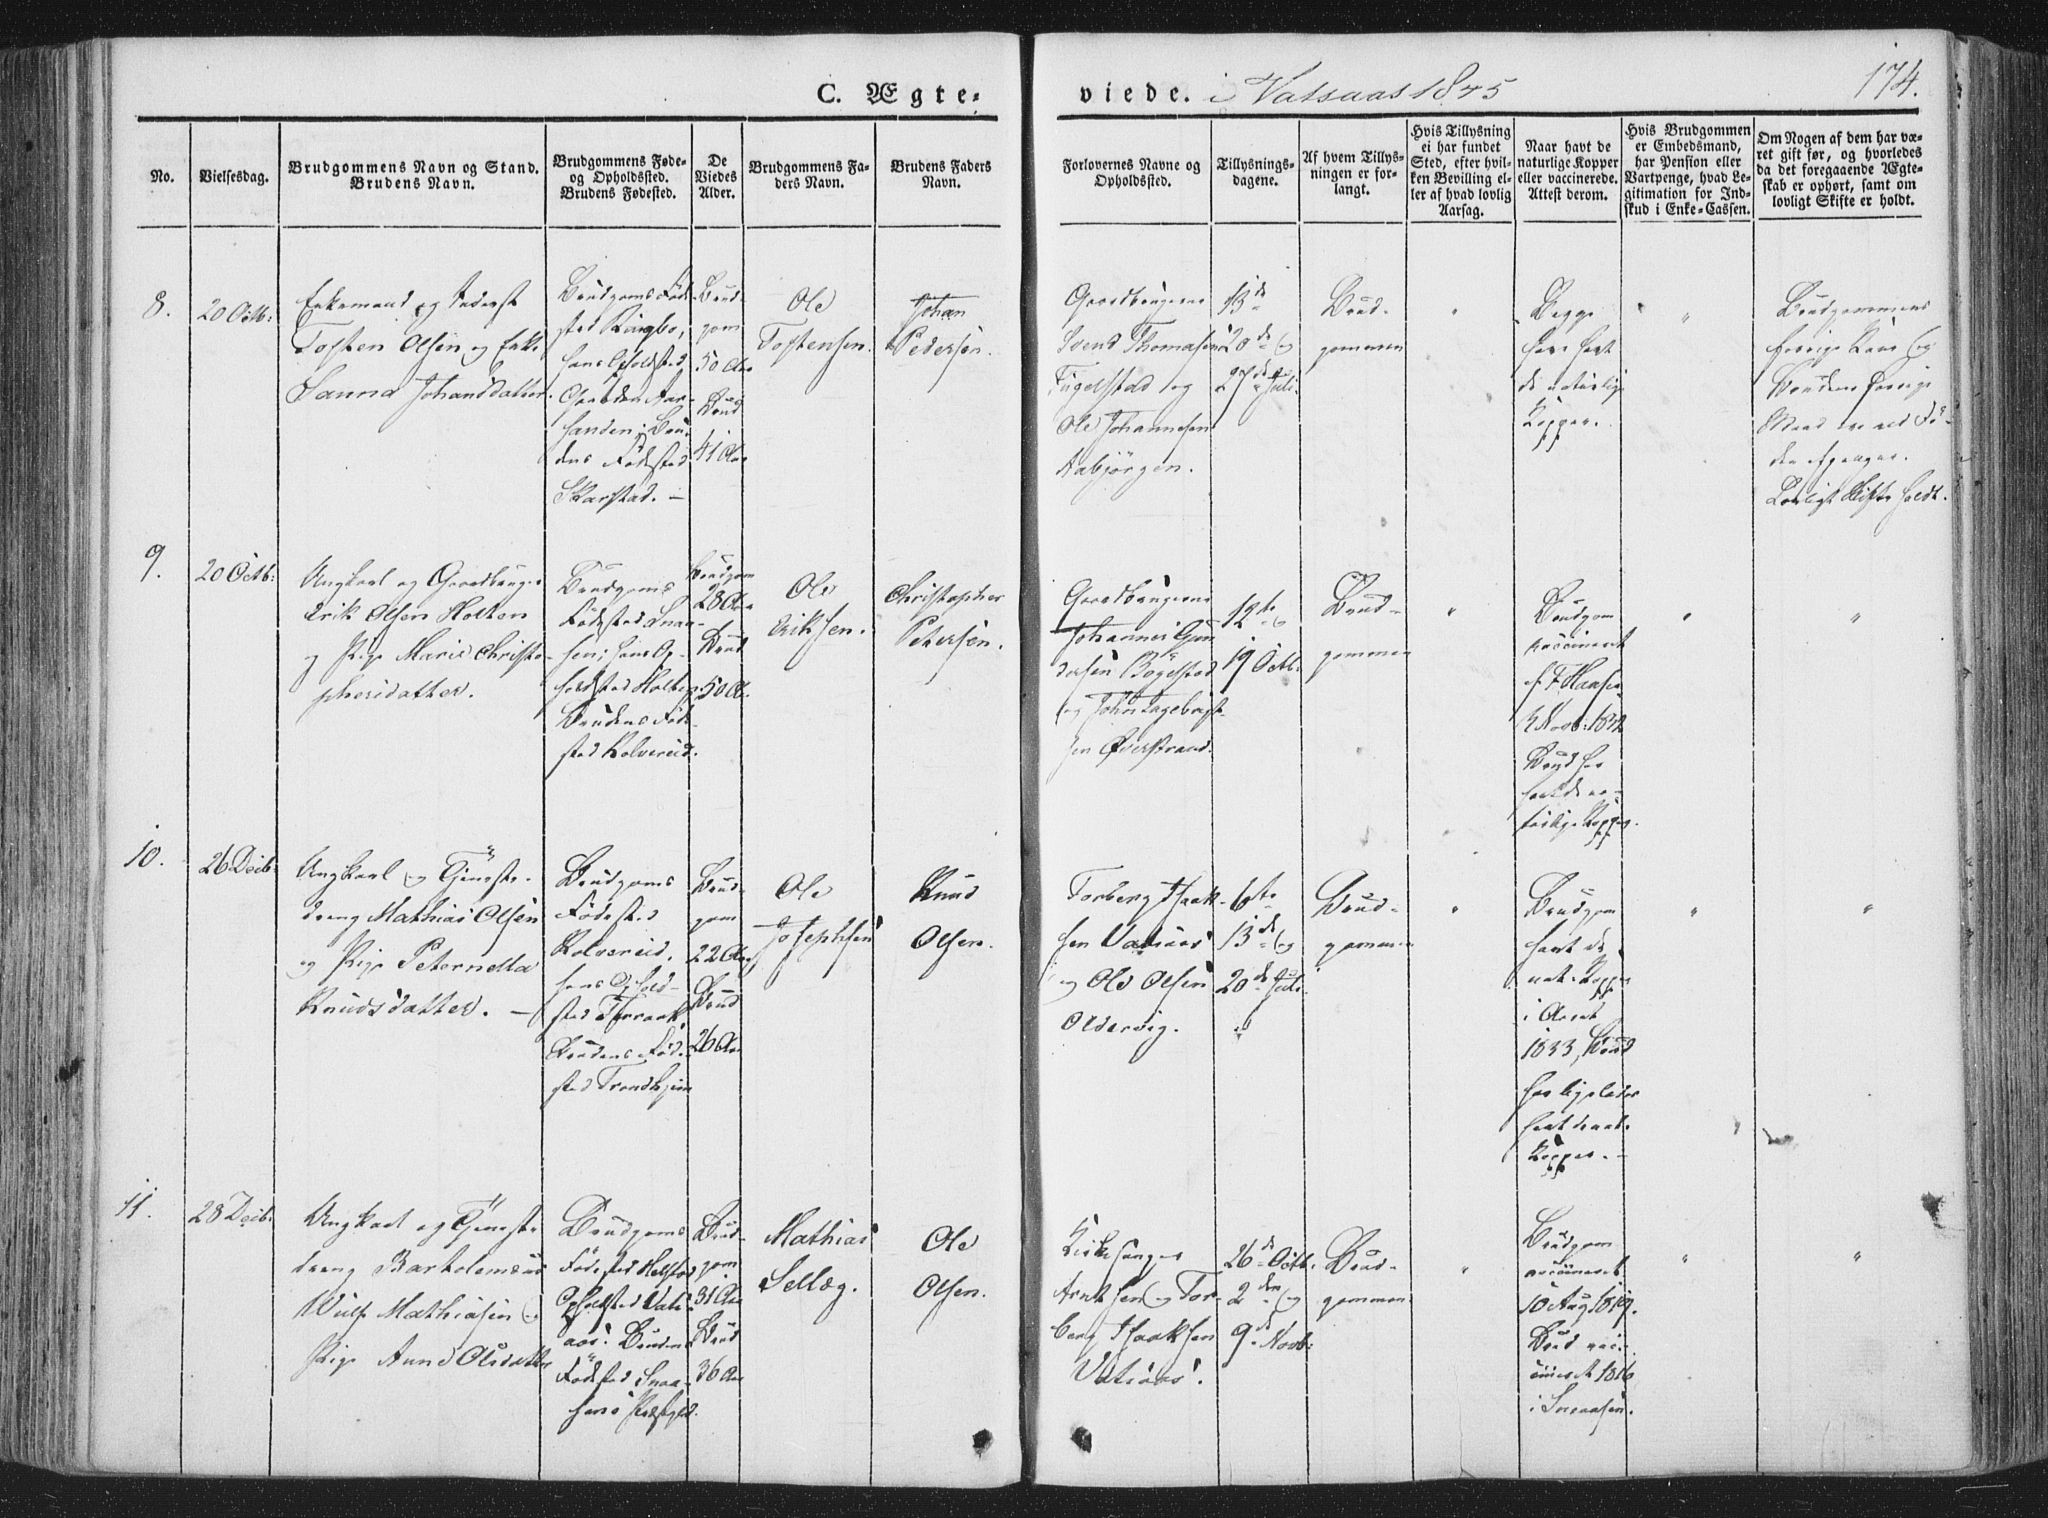 C. Ægte-
viede. i Vatsaas 1845
174.
No.
Vielsesdag.
Brudgommens Navn og Stand.
Brudens Navn.
Brudgommens Føde-
og Opholdsted.
Brudens Fødested.
De
Viedes
Alder.
Brudgommens Fa-
ders Navn.
Brudens Faders
Navn.
Forlovernes Navne og
Opholdsted.
Tillysnings-
dagene.
Af hvem Tillys-
ningen er for-
langt.
Hvis Tillysning
ei har fundet
Sted, efter hvil-
ken Bevilling el-
ler af hvad lovlig
Aarsag.
Naar havt de
naturlige Kopper
eller vaccinerede.
Attest derom.
Hvis Brudgommen
er Embedsmand,
har Pension eller
Vartpenge, hvad Le-
gitimation for Ind-
skud i Enke-Cassen.
Om Nogen af dem har væ-
ret gift før, og hvorledes
da det foregaaende Ægte-
skab er ophørt, samt om
lovligt Skifte er holdt.
8.
20 Octb:
Enkemand og Inderst
Tosten Olsen og Enke
Sanna Johansdatter.
Brudgoms Føde-
sted Ringbo,
hans Opholdsted
Gaarden Aar-
sanden; Bru-
dens Fødested
Skarstad. –
Brud-
gom
50 Aar
Brud
41 Aar
Ole
Tostensen.
Johan
Pedersen.
Gaardbrugerne
Svend Thomasen
Fugelstad og
Ole Johannesen
Aabjørgen.
13de
20de og
27de Juli.
Brud-
gommen
"
Begge
have havt
de naturlige
Kopper.
"
Brudgommens
forrige Kone og
Brudens forrige
Mand ere ved Dø-
den afgangne.
Lovligt Skifte holdt.
9.
20 Octb:
Ungkarl og Gaardbruger
Erik Olsen Holten
og Pige Marie Christo-
phersdatter.
Brudgoms
Fødested Snaa-
sen; hans Op-
holdsted Holten
Brudens Føde-
sted Kolvereid.
Brudgom
28 Aar
Brud
50 Aar
Ole
Eriksen.
Christopher
Petersen.
Gaardbrugerne
Johannes Gun-
dersen Bøgelstad
og John Ingebrigt-
sen Øverstrand.
12te og
19 Octb:
Brud-
gommen
"
Brudgom
vaccineret
af F Hansen
Novb: 1832
Brud har
havt de na-
turlige Kopper.
"
"
10.
26 Decb:
Ungkarl og Tjeneste-
dreng Mathias Olsen
og Pige Peternella
Knudsdatter. –
Brudgoms
Fødested
Kolvereid,
hans Ophold-
sted Terraak
Brudens Føde-
sted Trondhjem
Brud-
gom
22 Aar
Brud
26 Aar
Ole
Josephsen
Knud
Olsen.
Torberg Isaak-
sen Vatsaas
og Ole Olsen
Oldervig.
6te
13de og
20de Juli
Brud-
gommen
"
Brudgom
havt de
nat. Kopper
i Aaret
1833, Brud
har ligeledes
havt de nat.
Kopper. –
"
"
11.
28 Decb:
Ungkarl og Tjeneste
dreng Bartolemæus
Wulf Mathiasen og
Pige Anne Olsdatter
Brudgoms
Fødested Helstad
Opholdsted Vats-
aas. Brudens
Fødested Snaa-
sens Præstgjeld.
Brud-
gom
31 Aar
Brud
36 Aar
Mathias
Sellæg.
Ole
Olsen.
Kirkesanger
Arntsen og Tor-
berg Isaaksen
Vatsaas.
26de Octb:
2den og
9de Novb:
Brud-
gommen
"
Brudgom
vaccineret
10 Aug 1819.
Brud vac-
cineret 1816
i Snaasen.
"
"